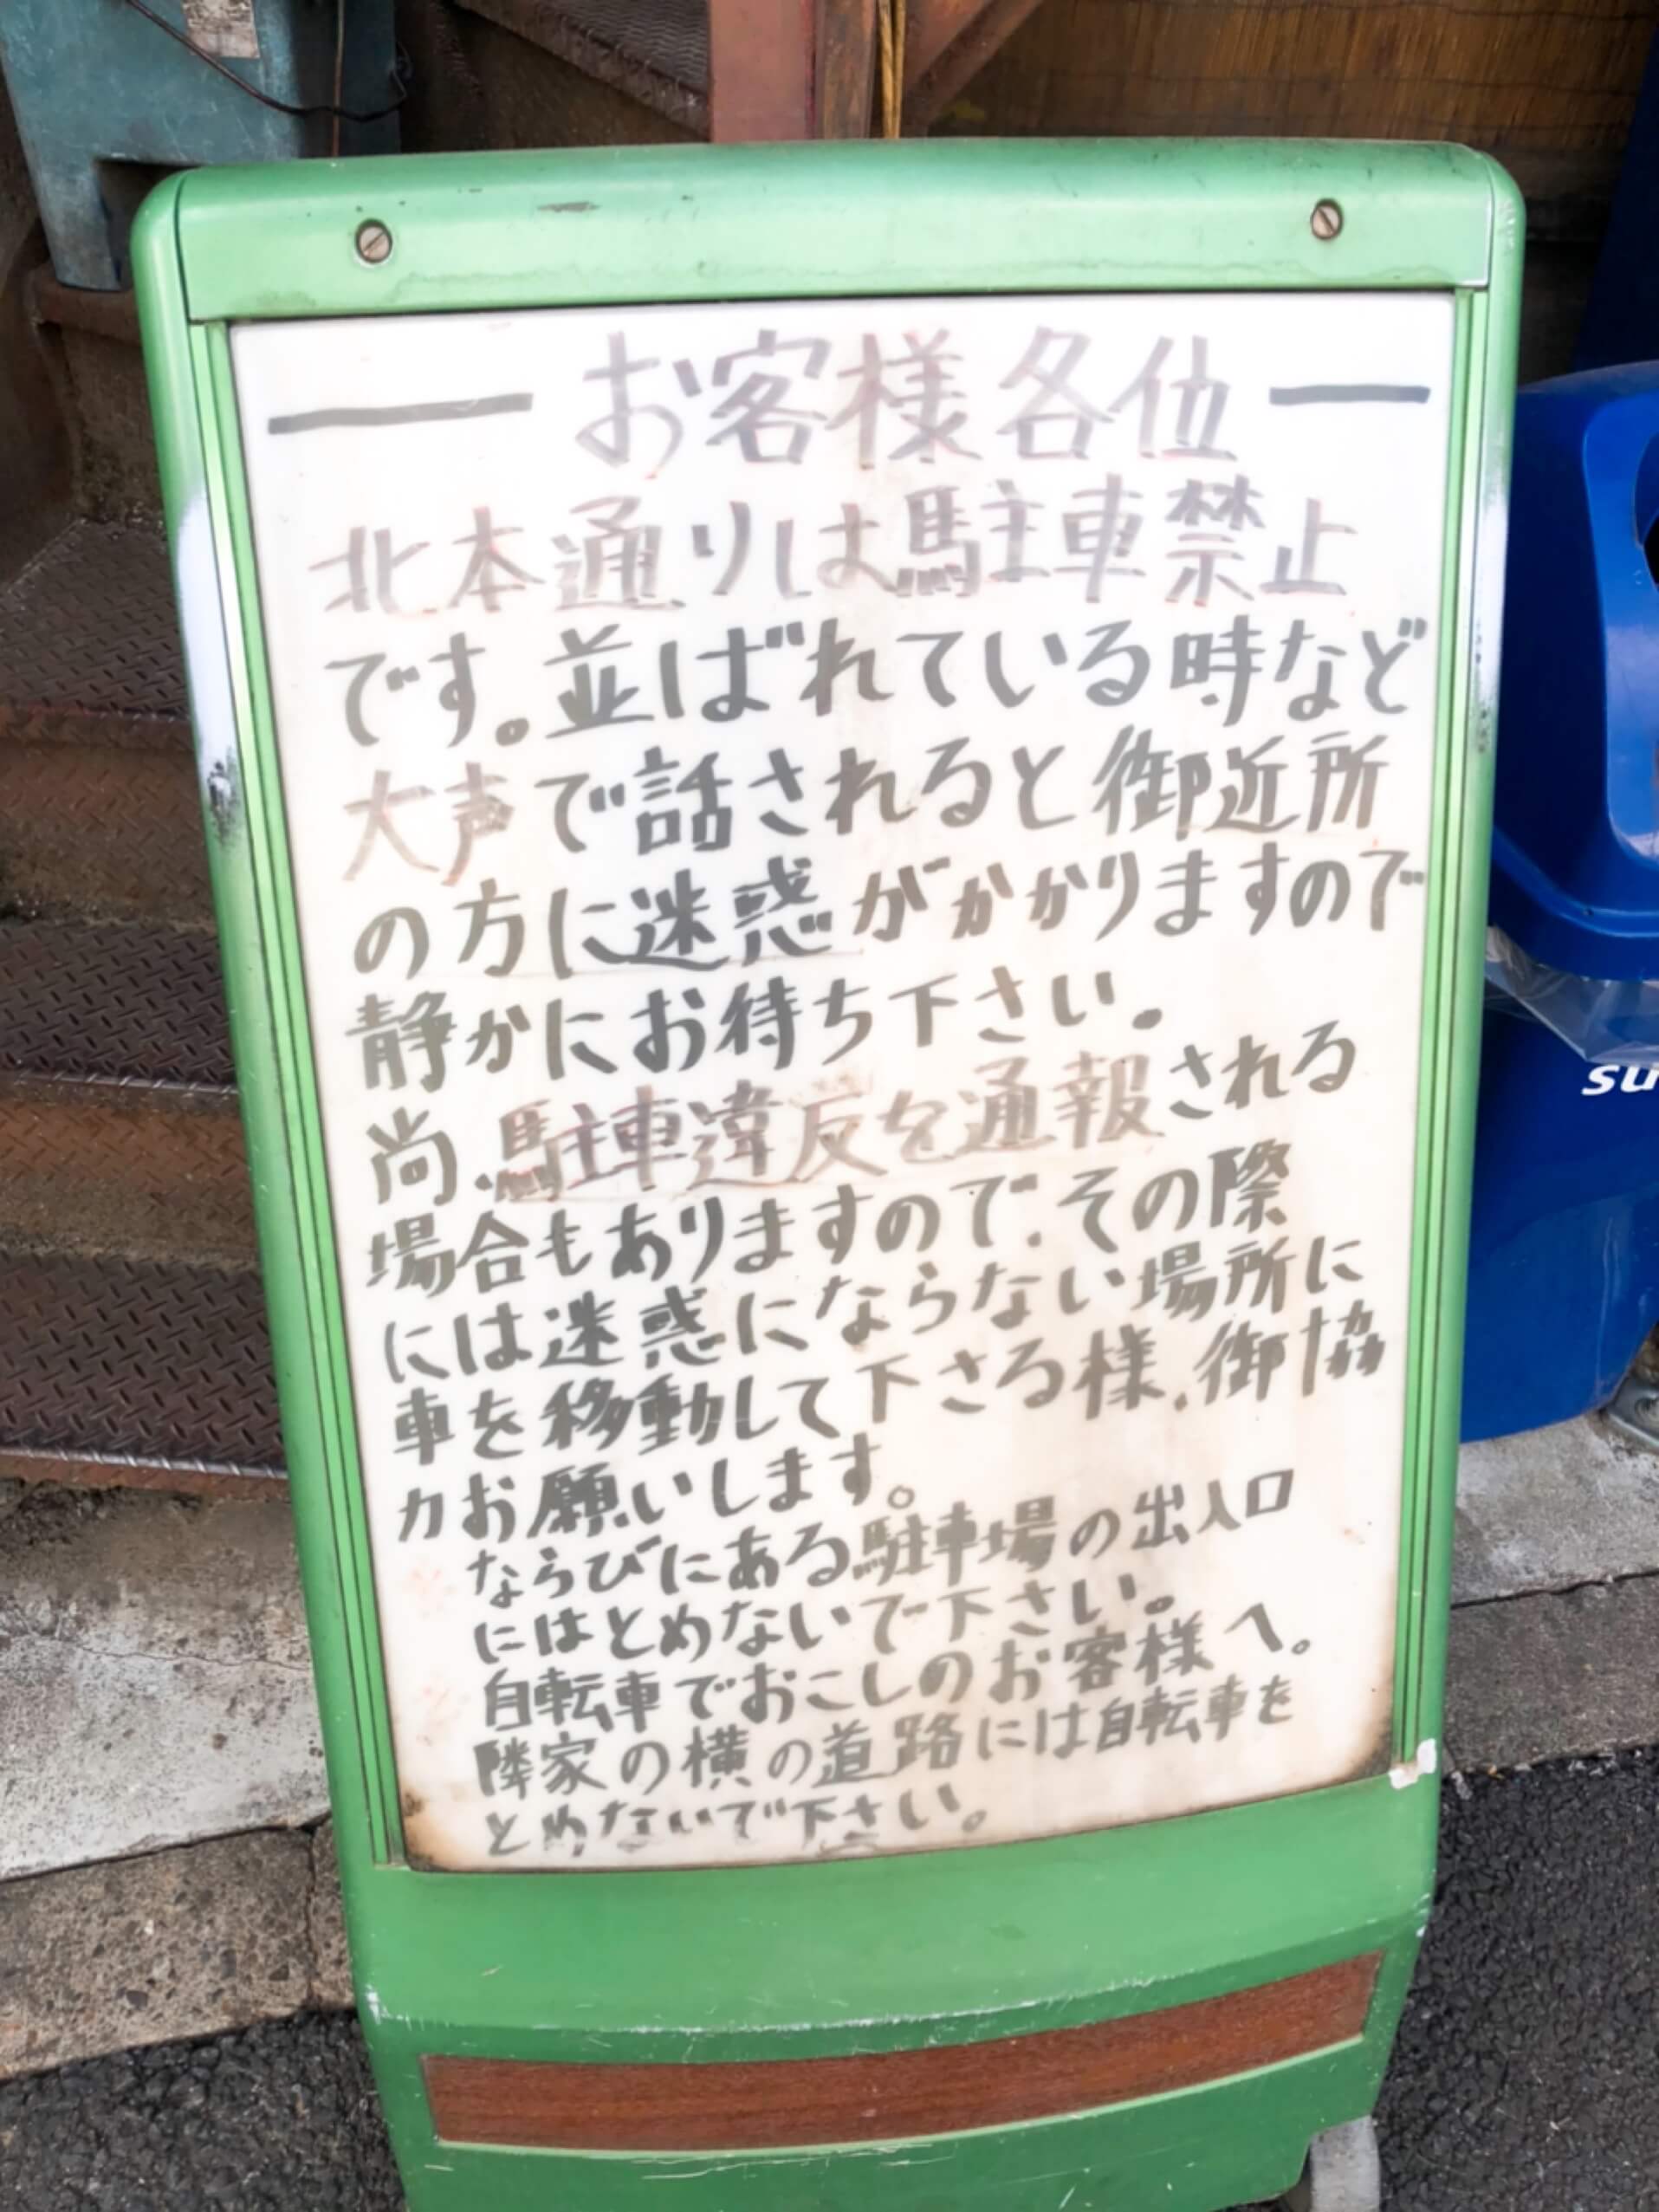 お客様各位
北本通りは駐車禁止
です。並ばれている時など
大声で話されると御近所
の方に迷惑がかかりますので
静かにお待ち下さい。
尚、駐車違反を通報される
場合もありますので、その際
には迷惑にならない場所に
車を移動して下さる様、御協
力お願いします。
ならびにある駐車場の出入口
にはとめないで下さい。
自転車でおこしのお客様へ。
隣家の横の道路には自転車を
とめないで下さい。
su